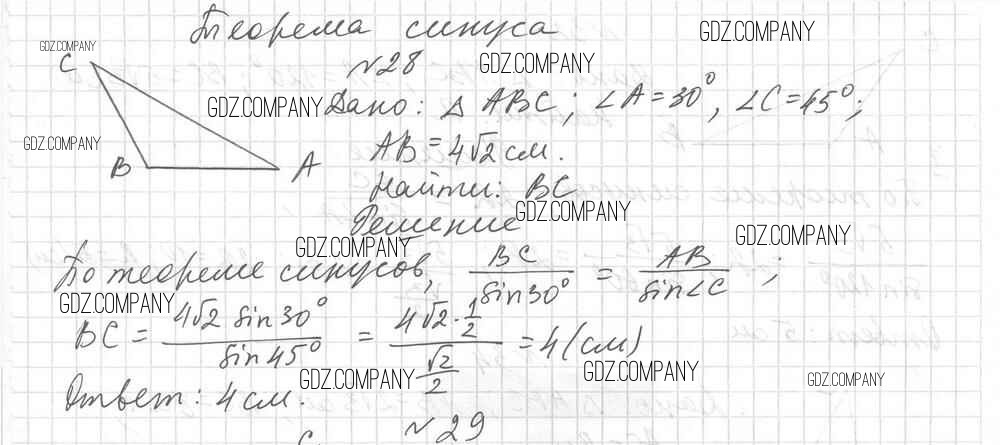 Теорема синуса
GDZ.COMPANY
GDZ.COMPANY
C
№28
GDZ.COMPANY
GDZ.COMPANY
Дано: △ ABC; ∠A = 30°, ∠C = 45°;
GDZ.COMPANY
AB = 4√2 см.
B
A
Найти: BC
GDZ.COMPANY
Решение
GDZ.COMPANY
GDZ.COMPANY
По теореме синусов, BC/sin30° = AB/sin∠C ;
GDZ.COMPANY
BC = 4√2 sin30°/sin45° = (4√2 · 1/2)/(√2/2) = 4 (см)
GDZ.COMPANY
GDZ.COMPANY
GDZ.COMPANY
Ответ: 4 см.
№29